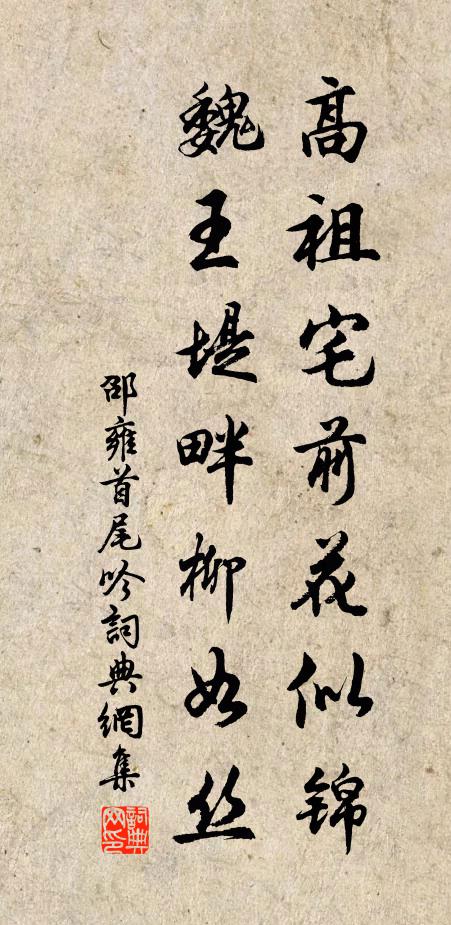 高祖宅前花似锦
魏王堤畔柳如丝
邵雍首尾吟詞典網集
詞典
网印